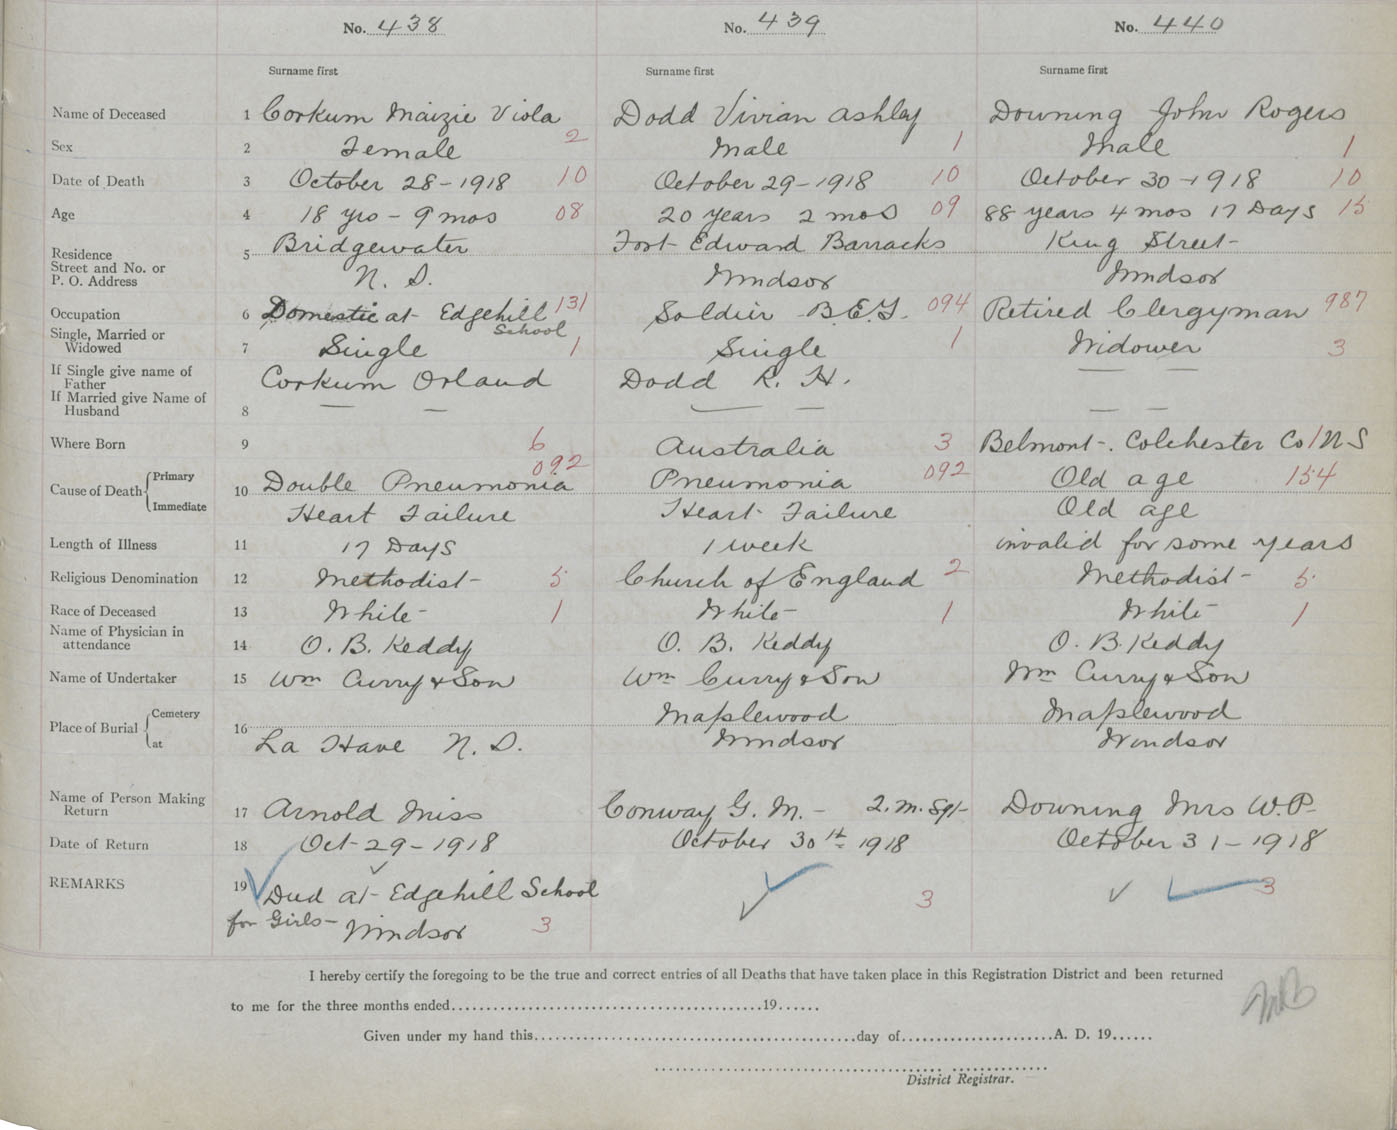 No. 438 No. 439 No. 440
Surname first Surname first Surname first
Name of Deceased 1 Corkum Maizie Viola Dodd Vivian Ashley Downing John Rogers
Sex 2 Female 2 Male 1 Male 1
Date of Death 3 October 28-1918 10 October 29-1918 10 October 30-1918 10
Age 4 18 yrs - 9 mos 08 20 years 2 mos 09 88 years 4 mos 17 Days 15
Residence Street and No. or P. O. Address 5 Bridgewater Fort Edward Barracks King Street
N. S. Windsor Windsor
Occupation 6 Domestic at Edgehill School 131 Soldier B.E.F. 094 Retired Clergyman 987
Single, Married or Widowed 7 Single 1 Single 1 Widower 3
If Single give name of Father Corkum Orland Dodd R. H. — —
If Married give Name of Husband 8 — — — — — —
Where Born 9 6 Australia 3 Belmont. Colchester Co 1 N S
Cause of Death Primary 10 Double Pneumonia 092 Pneumonia 092 Old age 154
Immediate Heart Failure Heart Failure Old age
Length of Illness 11 17 Days 1 week invalid for some years
Religious Denomination 12 Methodist 5 Church of England 2 Methodist 5
Race of Deceased 13 White 1 White 1 White 1
Name of Physician in attendance 14 O. B. Keddy O. B. Keddy O. B. Keddy
Name of Undertaker 15 Wm Curry & Son Wm Curry & Son Wm Curry & Son
Place of Burial Cemetery 16 Maplewood Maplewood
at La Have N. S. Windsor Windsor
Name of Person Making Return 17 Arnold Miss Conway G. M. - 2. M. Sgt Downing Mrs W.P.
Date of Return 18 Oct-29-1918 October 30th 1918 October 31-1918
REMARKS 19 Died at Edgehill School 3 3
for Girls - Windsor 3
I hereby certify the foregoing to be the true and correct entries of all Deaths that have taken place in this Registration District and been returned
to me for the three months ended 19
Given under my hand this day of A. D. 19
District Registrar.